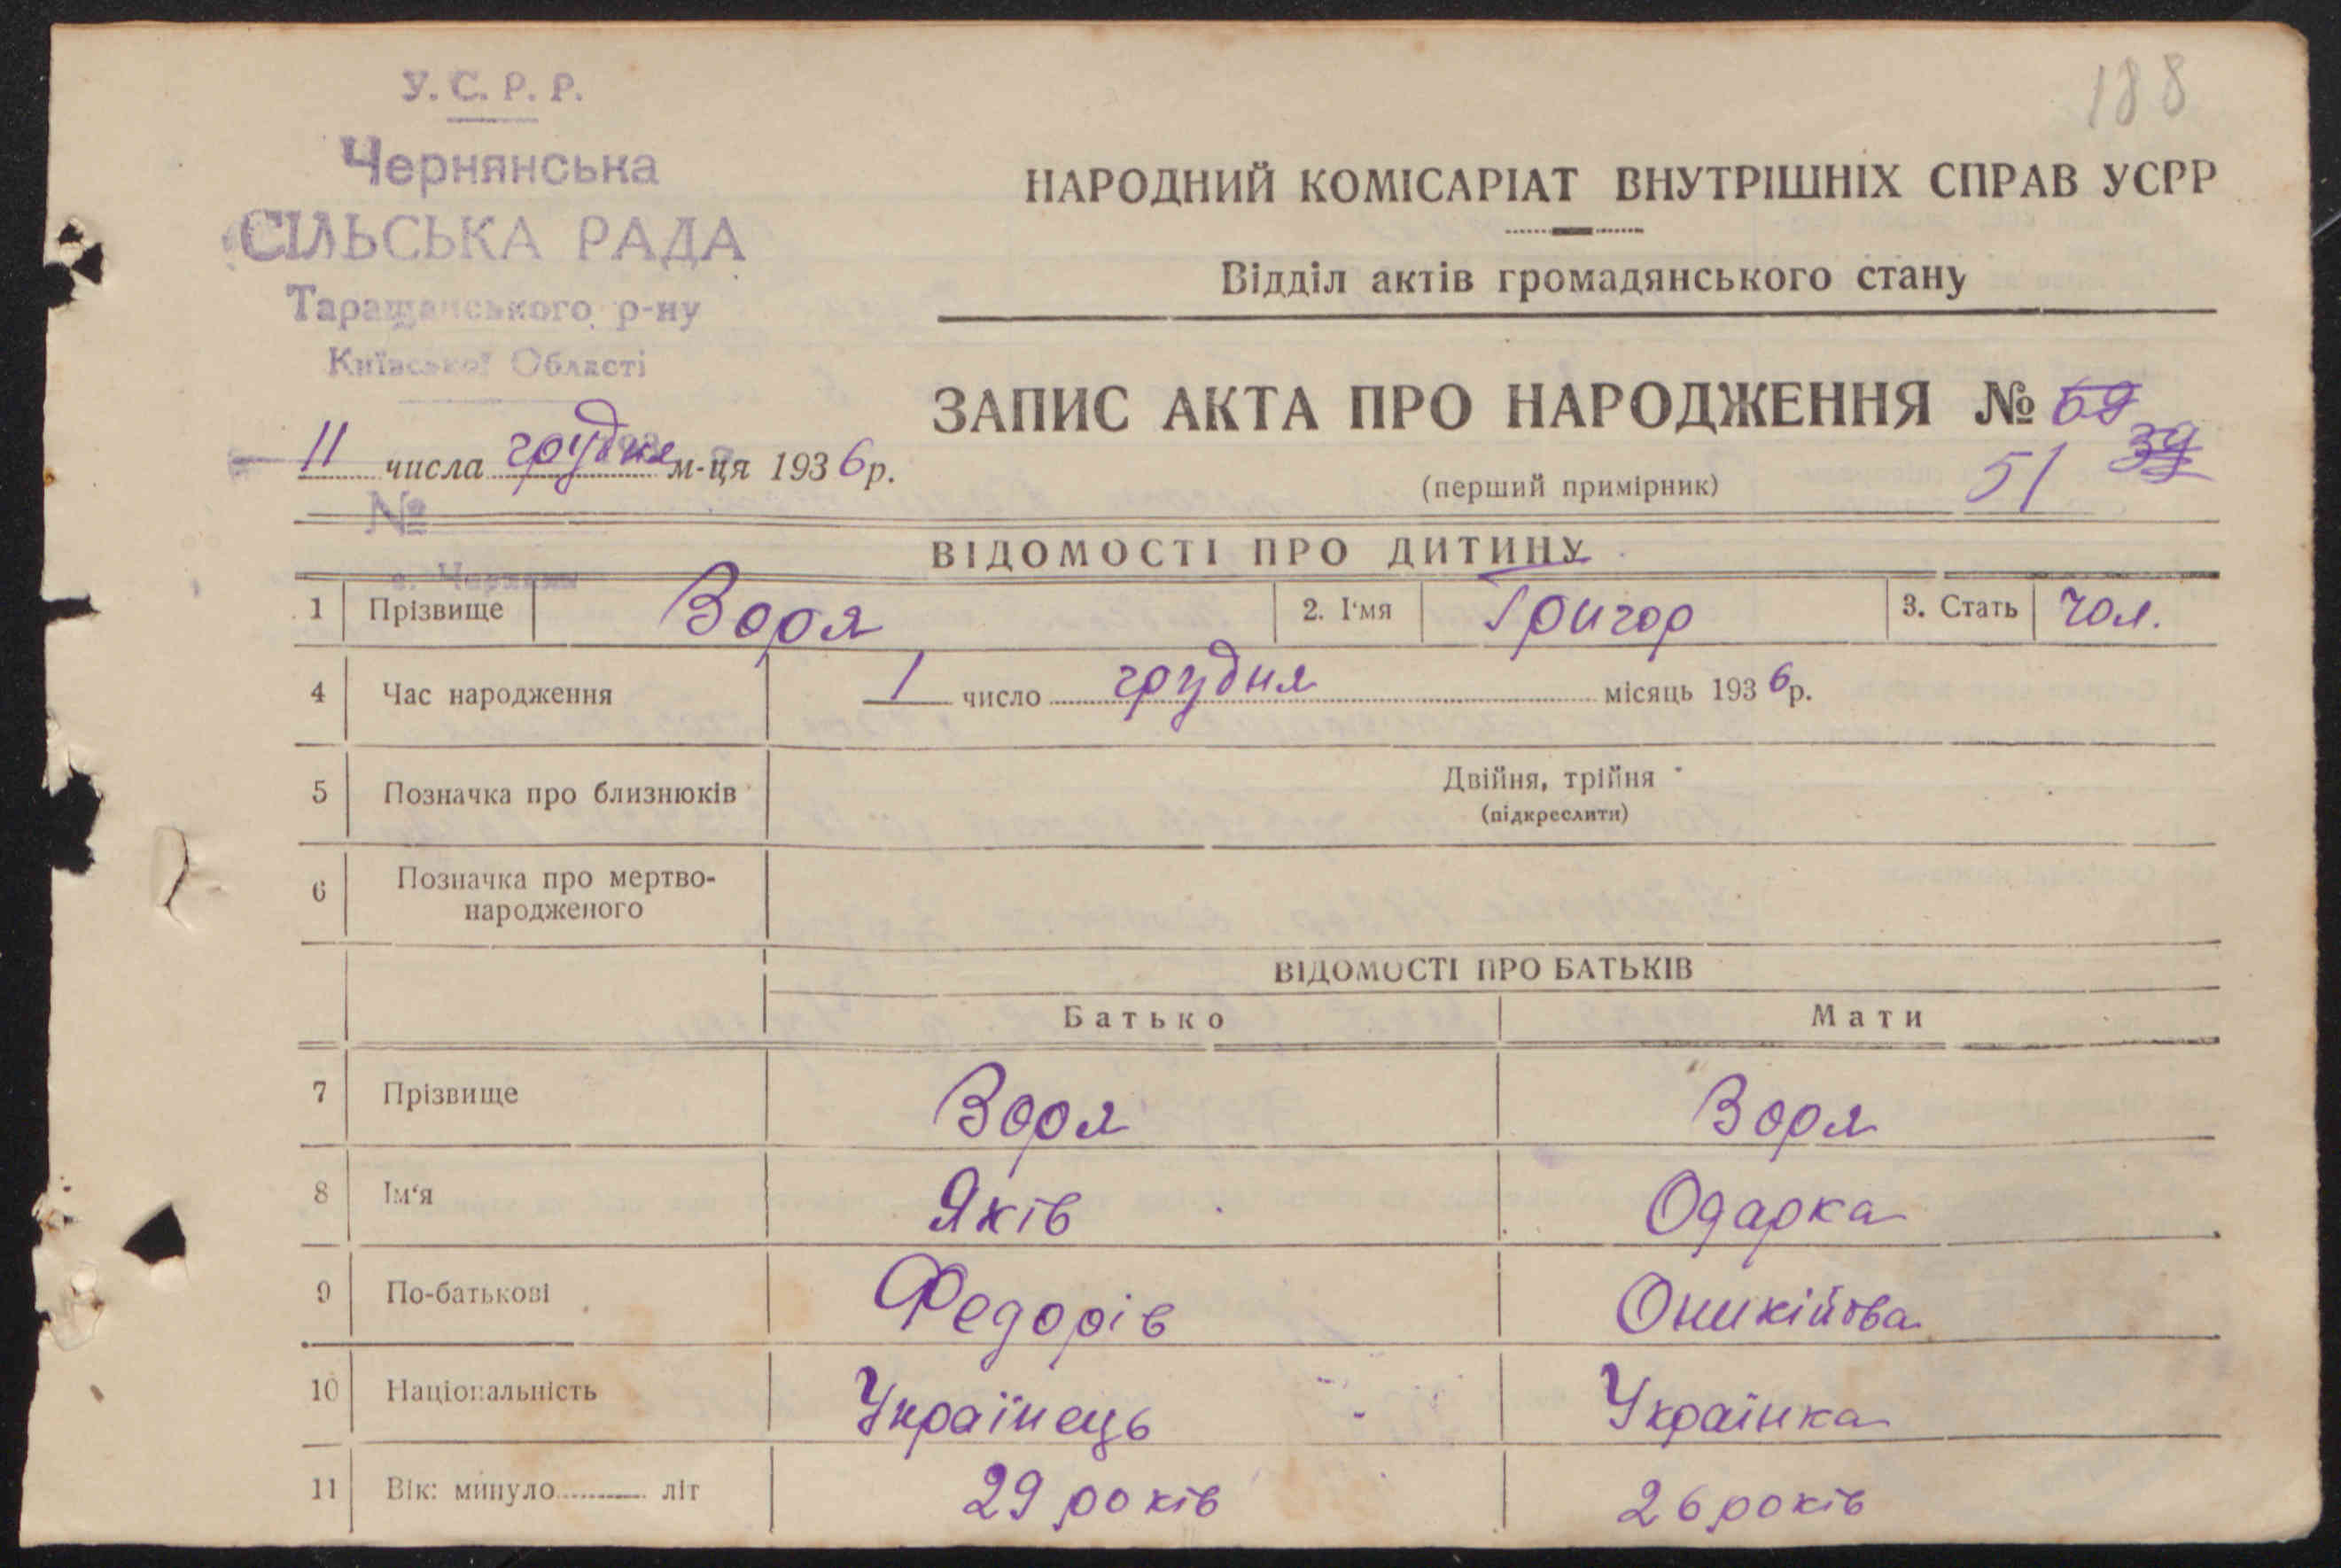 188
У. С. Р. Р.
Чернянська
СІЛЬСЬКА РАДА
Таращанського р-ну
Київської Області
№
НАРОДНИЙ КОМІСАРІАТ ВНУТРІШНІХ СПРАВ УСРР
Відділ актів громадянського стану
ЗАПИС АКТА ПРО НАРОДЖЕННЯ № 69
39
11 числа грудня м-ця 1936 р.
(перший примірник) 51
ВІДОМОСТІ ПРО ДИТИНУ
1 Прізвище Зоря 2. І'мя Григор 3. Стать чол.
4 Час народження 1 число грудня місяць 1936 р.
5 Позначка про близнюків Двійня, трійня
(підкреслити)
6 Позначка про мертво-
народженого
ВІДОМОСТІ ПРО БАТЬКІВ
Батько Мати
7 Прізвище Зоря Зоря
8 Ім'я Яків Одарка
9 По-батькові Федорів Оникійова
10 Національність Українець Українка
11 Вік: минуло ........ літ 29 років 26 років